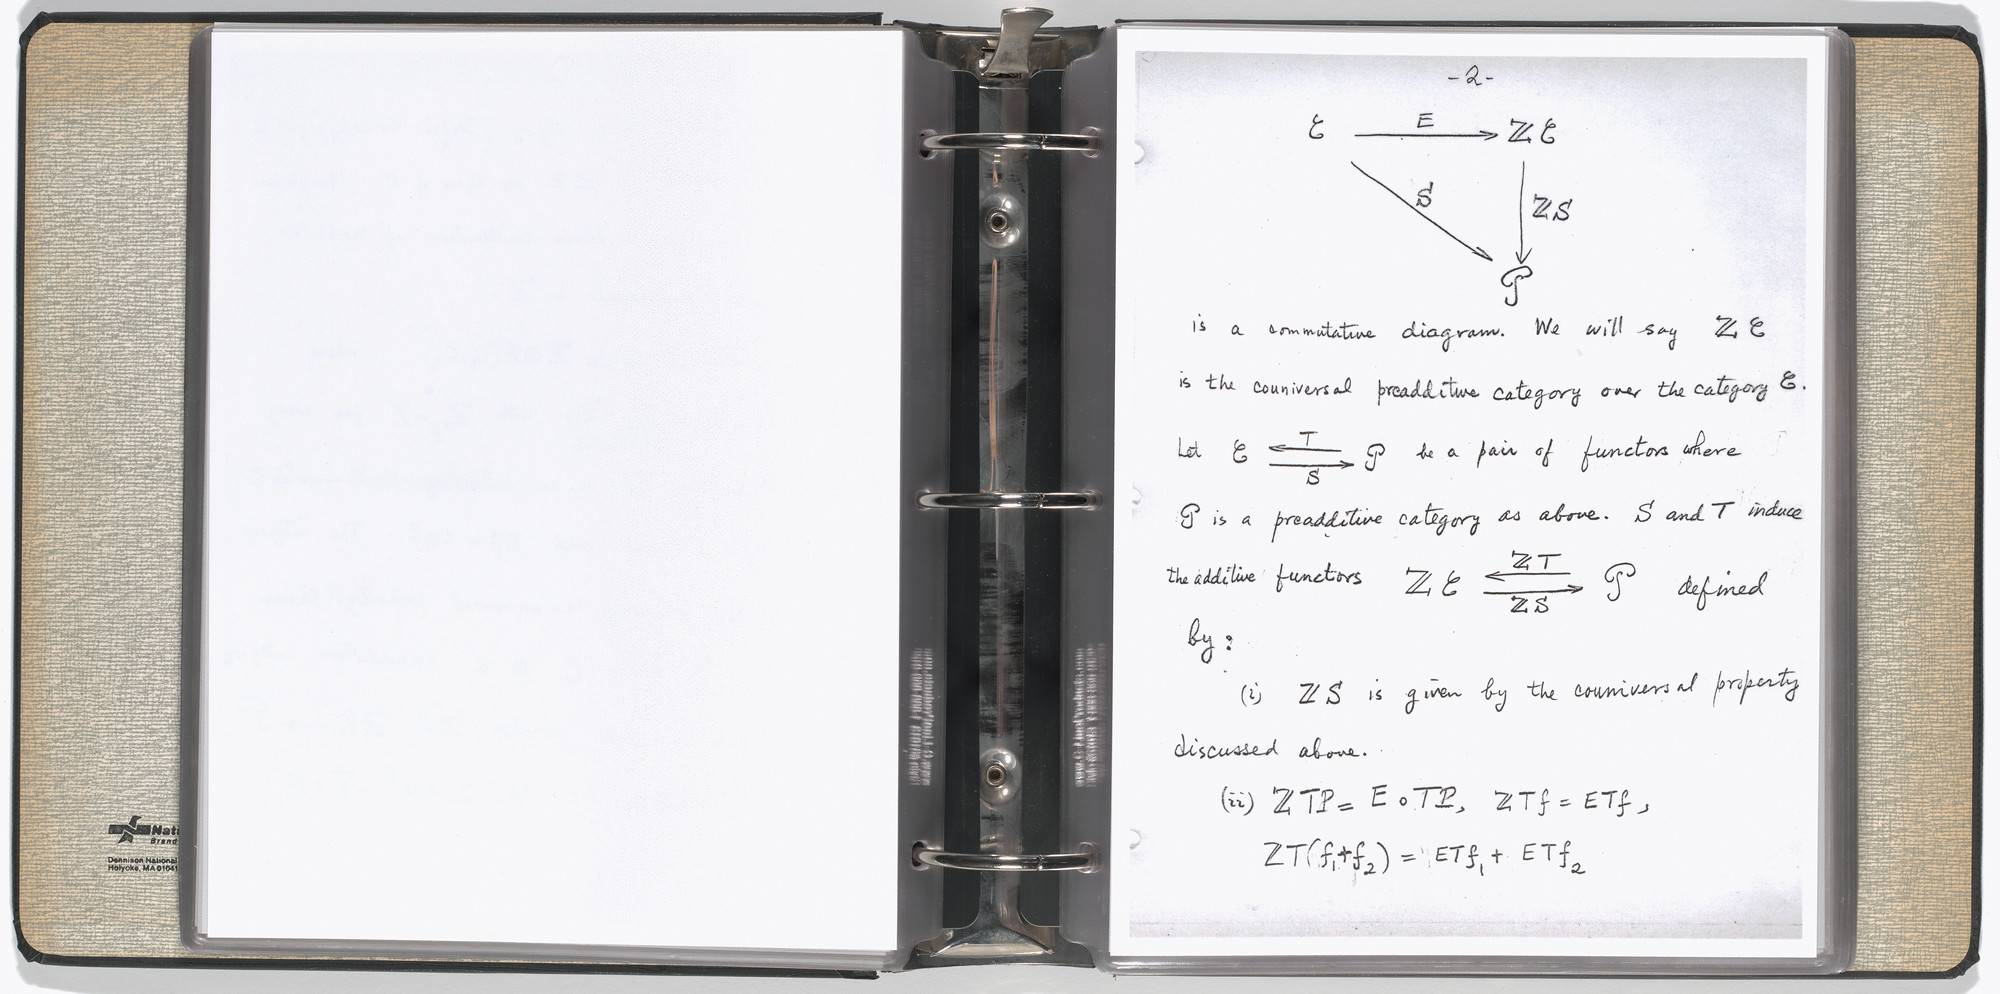 -2-
ℰ E ℤℰ
S ℤS
𝒫
is a commutative diagram. We will say ℤℰ
is the couniversal preadditive category over the category ℰ.
Let ℰ T S 𝒫 be a pair of functors where
𝒫 is a preadditive category as above. S and T induce
the additive functors ℤℰ ℤT ℤS 𝒫 defined
by:
(i) ℤS is given by the couniversal property
discussed above.
(ii) ℤTP = E∘TP, ℤTf = ETf,
ℤT(f₁+f₂) = ETf₁ + ETf₂
Nati
Brand
Dennison National
Holyoke, MA 01041